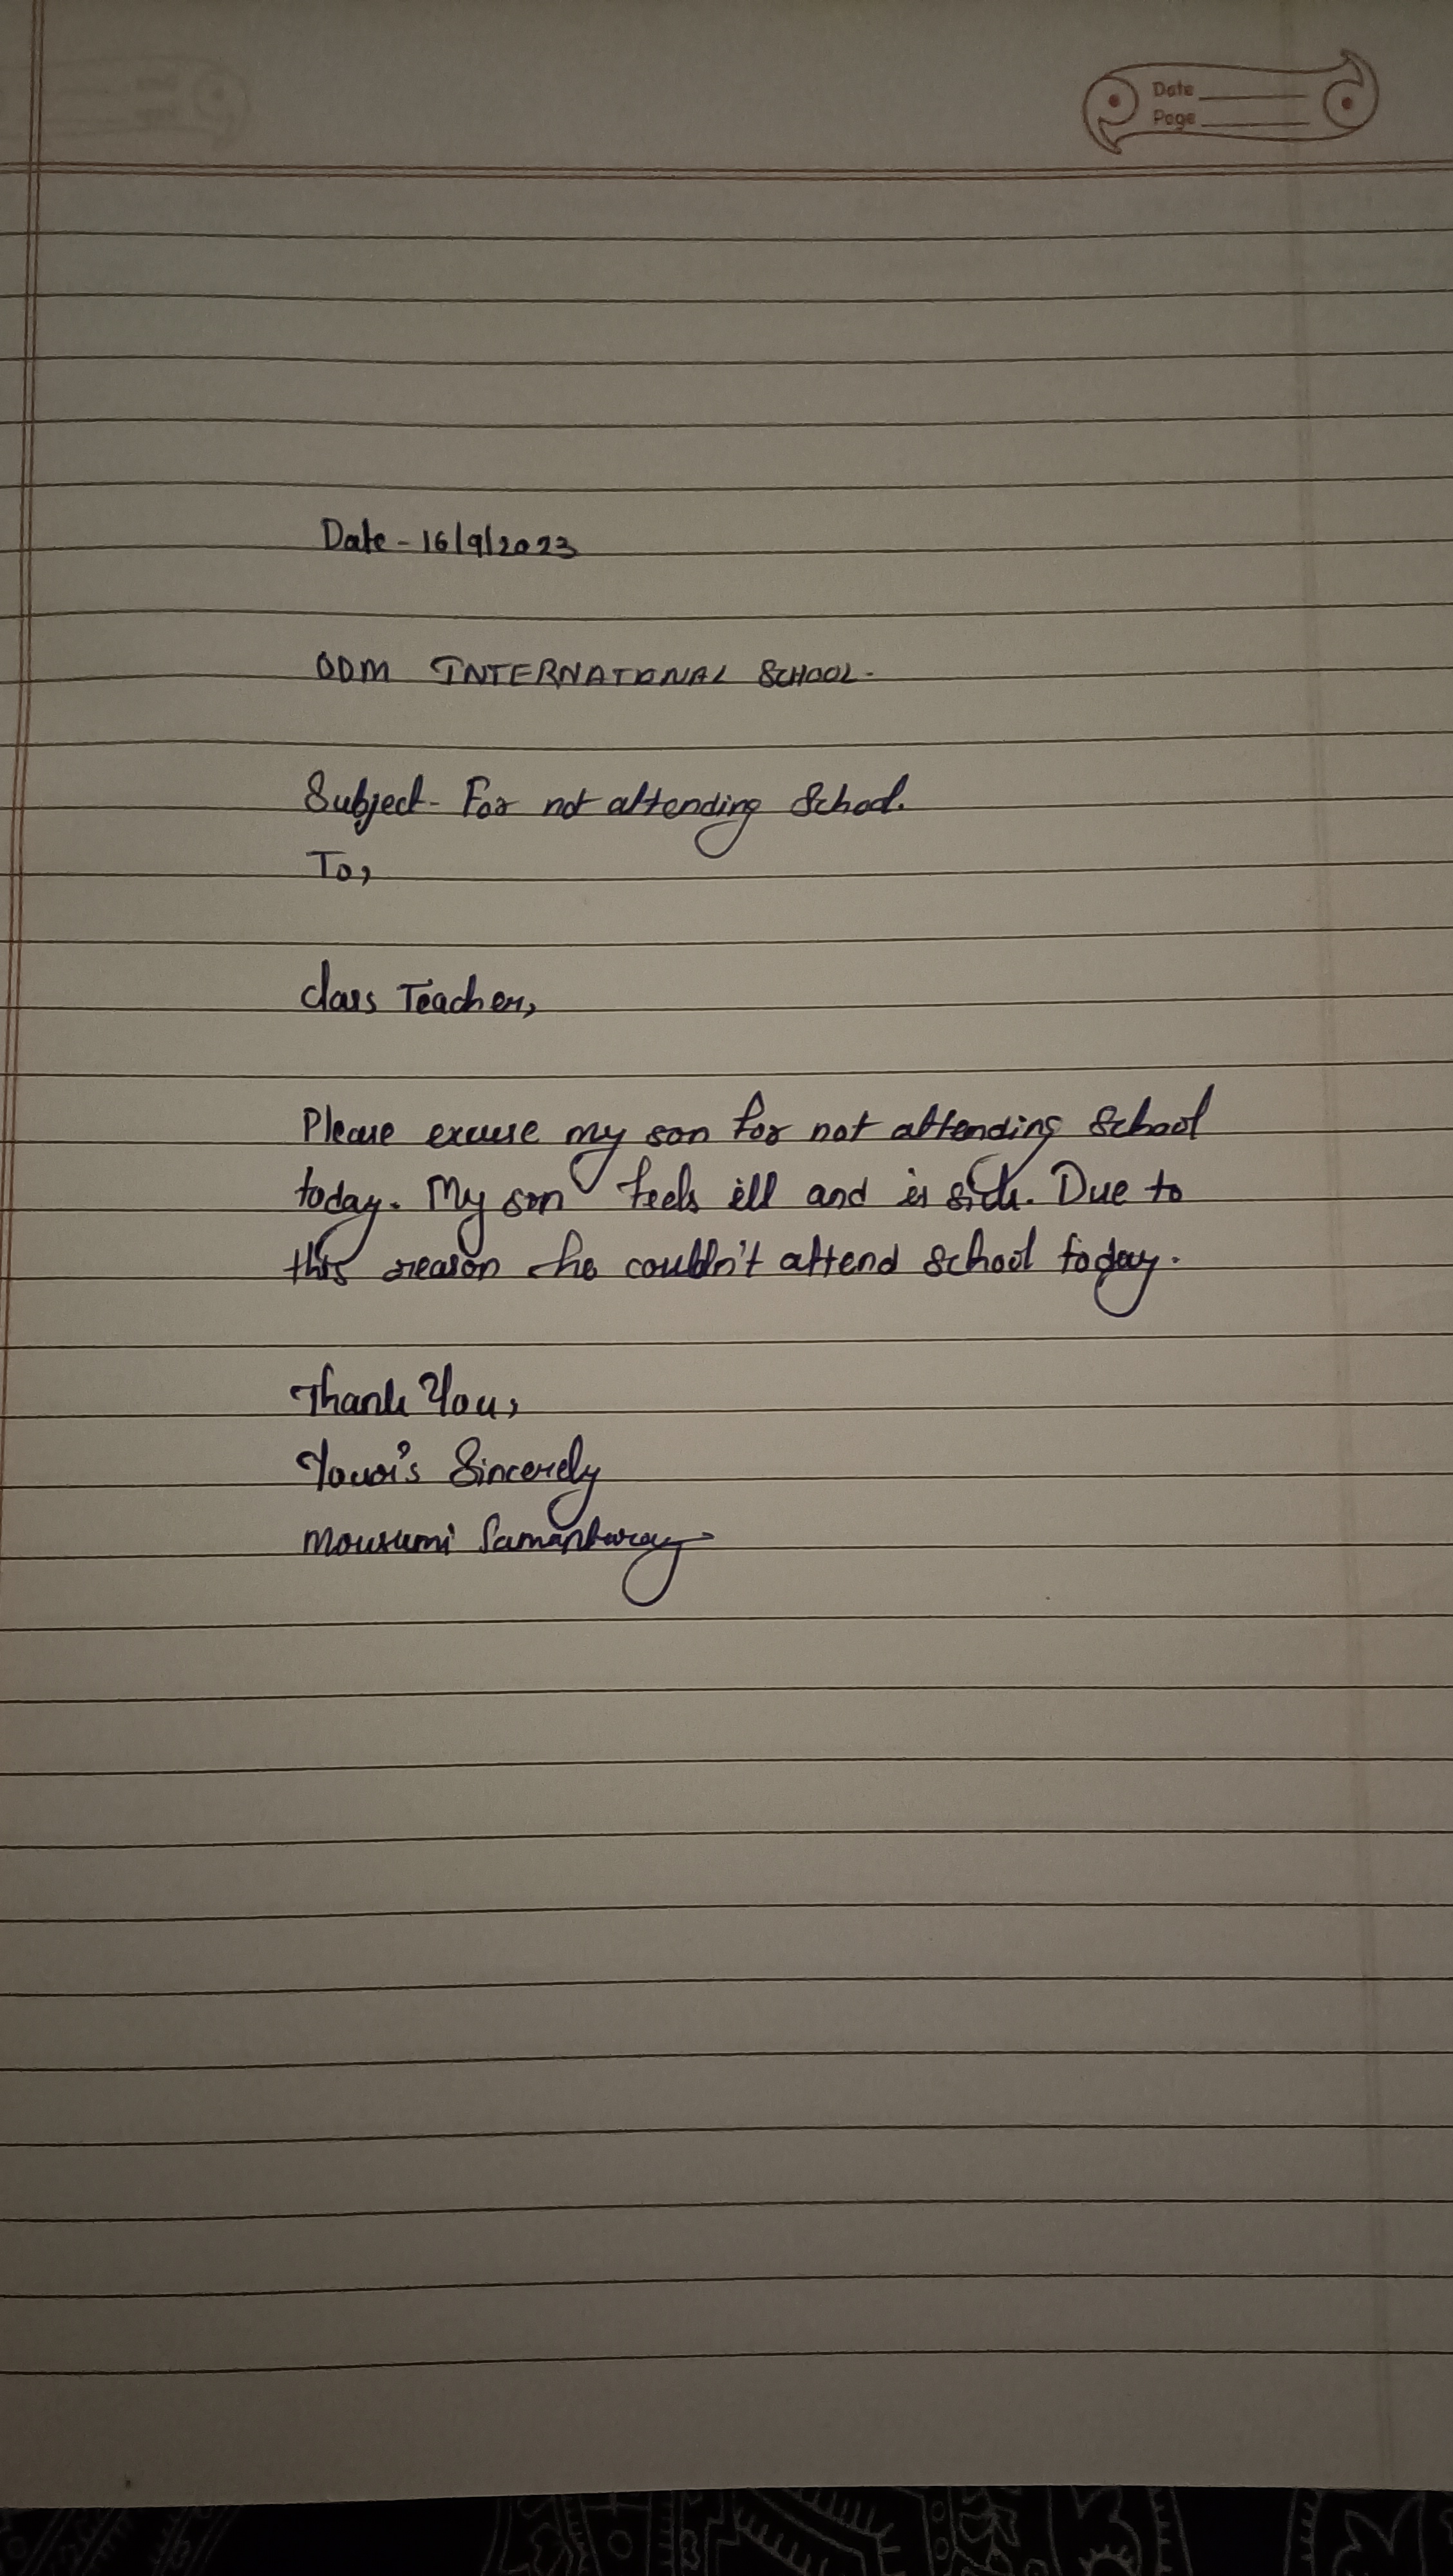 Date
Page
Date - 16/9/2023
ODM INTERNATIONAL SCHOOL.
Subject - For not attending School.
To,
class Teacher,
Please excuse my son for not attending School
today. My son feels ill and is sick. Due to
this reason he couldn't attend school today.
Thank You,
Your's Sincerely
Mousumi Samantaray